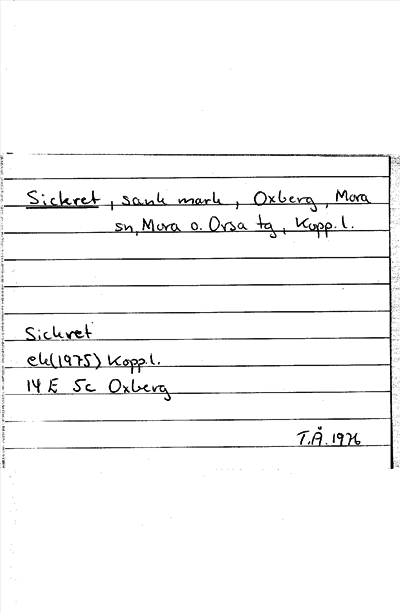 Sickret, sank mark, Oxberg, Mora
sn, Mora o. Orsa tg, Kopp. l.
Sickret
ek(1975) Kopp.l.
14 E 5c Oxberg
T.Å. 1976